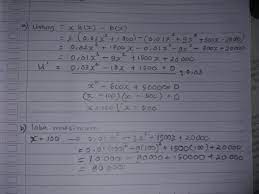 a) Untung = x h(x) - b(x)
= x (0.02x² + 1800) - (0.01x³ + 9x² + 300x - 20000)
= 0.02x³ + 1800x - 0.01x³ - 9x² - 300x + 20000
= 0.01x³ - 9x² + 1500x + 20000
U' = 0.03x² - 18x + 1500 = 0
x² - 600x + 50000 = 0
(x - 100)(x - 500) = 0
x = 100 x = 500
b) laba maksimum
x = 100 → 0.01x³ - 9x² + 1500x + 20000
= 0.01(100)³ - 9(100)² + 1500(100) + 20000
= 10000 - 90000 + 150000 + 20000
= 90000